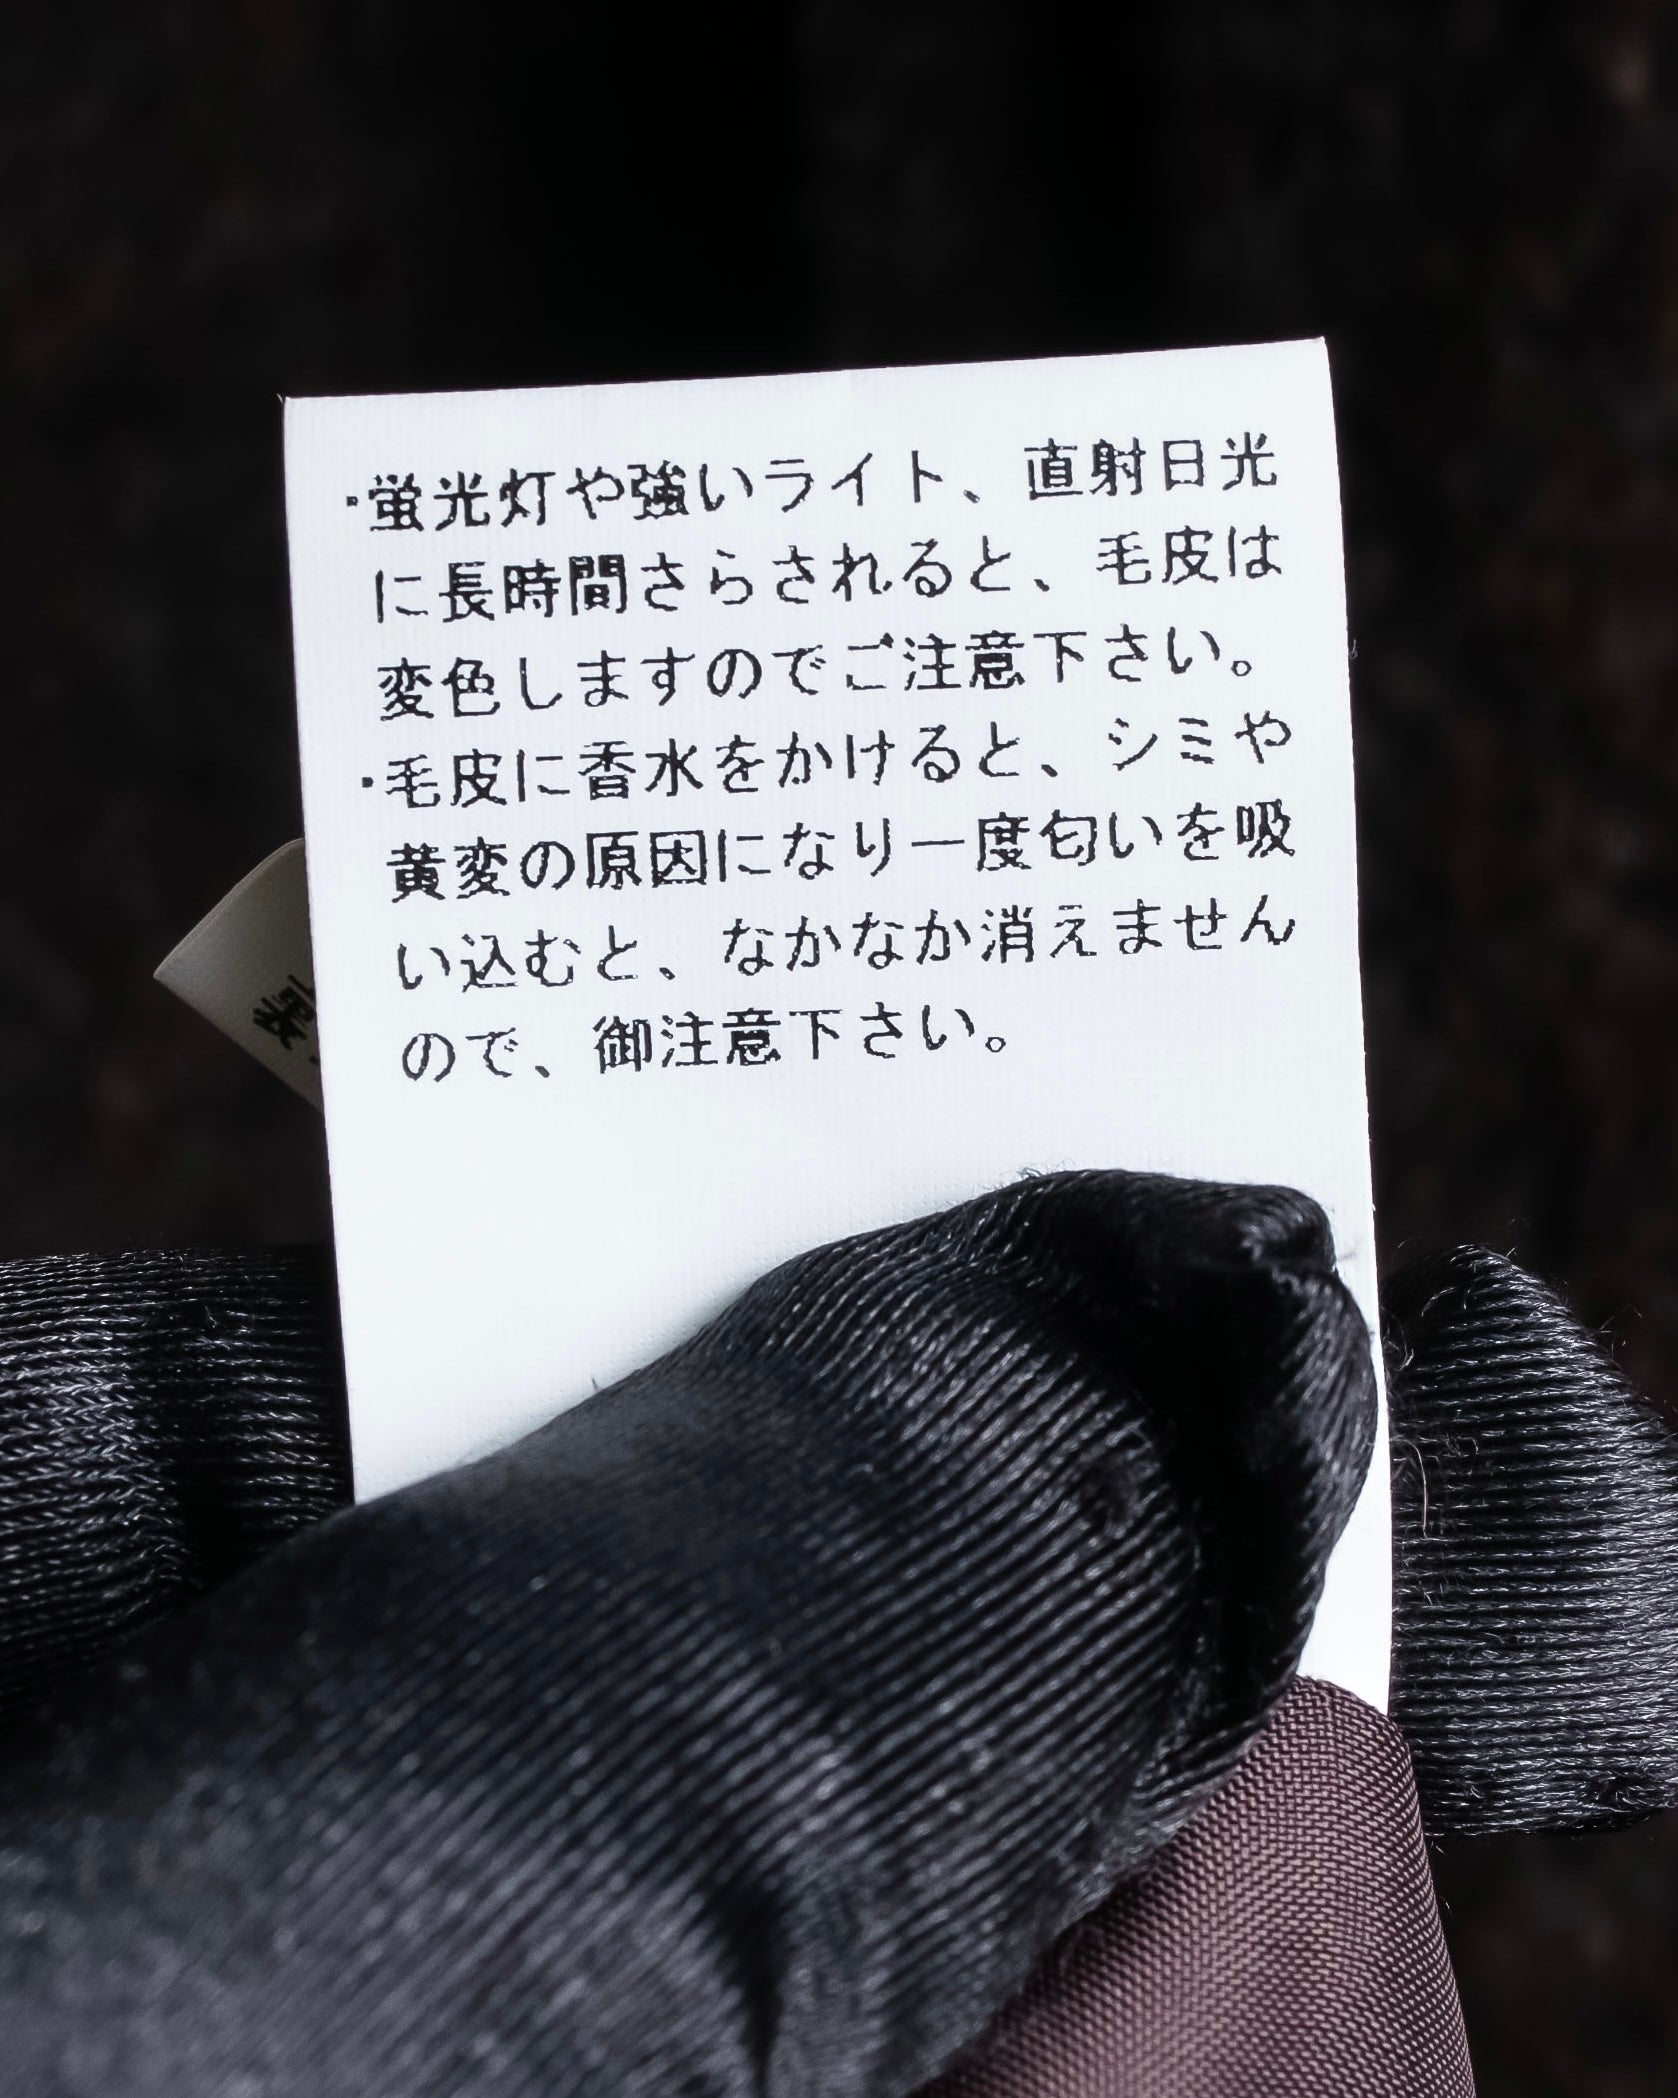 ・蛍光灯や強いライト、直射日光
に長時間さらされると、毛皮は
変色しますのでご注意下さい。
・毛皮に香水をかけると、シミや
黄変の原因になり一度匂いを吸
い込むと、なかなか消えません
ので、御注意下さい。